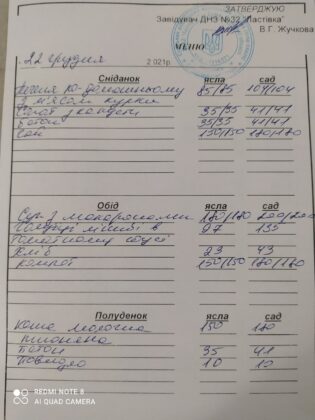 ЗАТВЕРДЖУЮ
Завідувач ДНЗ №32"Ластівка"
В.Г. Жучкова
МЕНЮ
22 грудня 2 021р.
Сніданок ясла сад
по-домашньому 85/85 104/104
з м'ясом курки
35/35 41/41
Батон 35/35 41/41
Чай 150/150 180/180
Обід ясла сад
Суп з макаронами 180/180 200/200
ліниві в 97 135
томатному соусі
Хліб 23 43
Компот 150/150 180/180
Полуденок ясла сад
Каша молочна 150 180
пшоняна
Батон 35 41
Повидло 10 10
REDMI NOTE 8
AI QUAD CAMERA